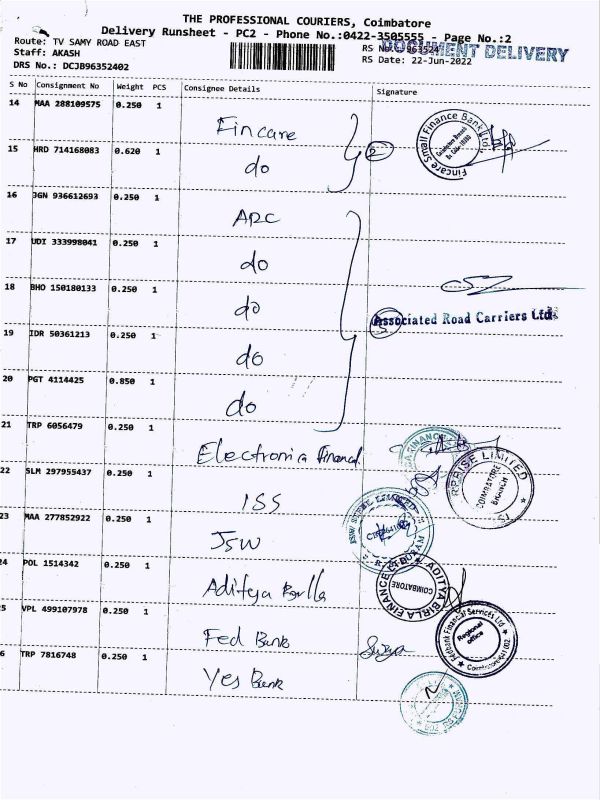 THE PROFESSIONAL COURIERS, Coimbatore
Delivery Runsheet - PC2 - Phone No.:0422-3505555 - Page No.:2
Route: TV SAMY ROAD EAST
Staff: AKASH
DRS No.: DCJB96352402
RS No.: 963524
DOCUMENT DELIVERY
RS Date: 22-Jun-2022
S No Consignment No Weight PCS Consignee Details Signature
14 MAA 288109575 0.250 1 Fincare
15 HRD 714168083 0.620 1 do 2
Fincare Small Finance Bank Ltd.
16 JGN 936612693 0.250 1 ARC
17 UDI 333998041 0.250 1 do
18 BHO 150180133 0.250 1 do
Associated Road Carriers Ltd.
19 IDR 50361213 0.250 1 do
20 PGT 4114425 0.850 1 do
21 TRP 6056479 0.250 1 Electronica Financal
22 SLM 297955437 0.250 1 ISS
PRISE LIMITED
COIMBATORE
BRANCH
23 MAA 277852922 0.250 1 JSW
24 POL 1514342 0.250 1 Aditya Birlla
ADITYA BIRLA FINANCE
COIMBATORE
5 VPL 499107978 0.250 1 Fed Bank
Fedbank Financial Services Ltd
Regional
office
Coimbatore-641 002
6 TRP 7816748 0.250 1 Yes Bank